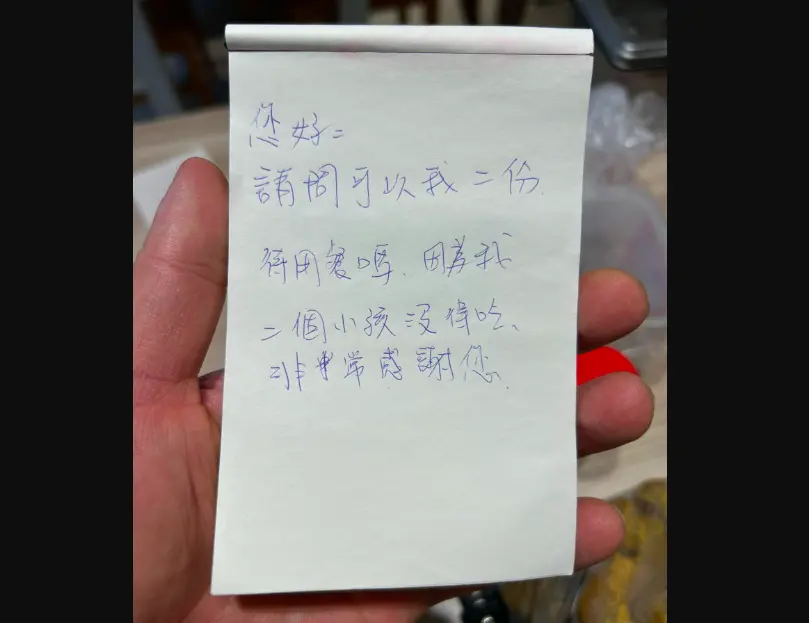 您好=
請問可以我二份
待用餐嗎、因為我
二個小孩沒得吃、
非常感謝您.